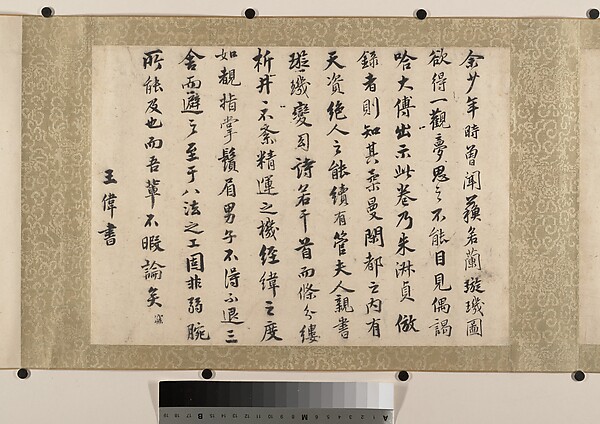 余少年時曾聞蘇若蘭璇璣圖
欲得一觀夢思之不能目見偶謁
哈大傳出示此卷乃朱淑貞倣
錄者則知其柔曼閑都之內有
天資絕人之能續有管夫人親書
璇璣變詩若干首而條分縷
析井々不紊精運之機經緯之度
如觀指掌鬚眉男子不得不退三
舍而避之至于八法之工固非弱腕
所能及也而吾輩不暇論矣
王偉書